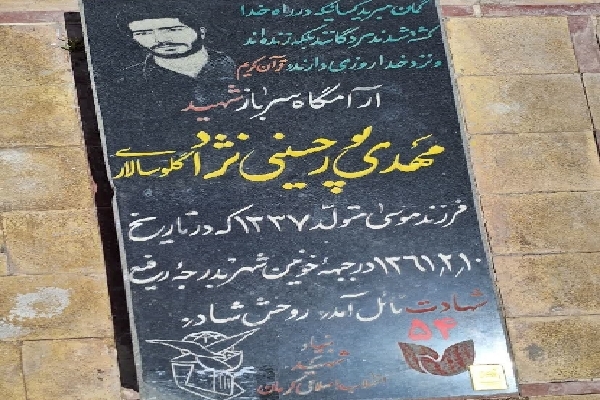 گمان مبرید کسانیکه در راه خدا
کشته شدند مردگانند بلکه زنده اند
و نزد خدا روزی دارند: قرآن کریم
آرامگاه سرباز شهید
مهدی پورحسینی نژاد گلوسالاری
فرزند موسی متولد ۱۳۳۷ که در تاریخ
۱۳۶۱,۲,۱۰ در جبهه خونین شهر بدرجه رفیع
شهادت نائل آمد. روحش شاد.
۵۴
بنیاد
شهید
انقلاب اسلامی کرمان